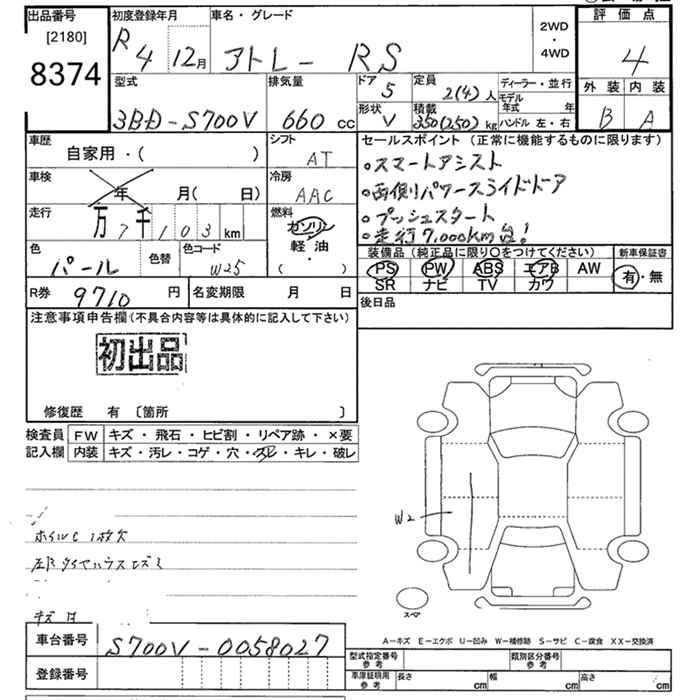 出品番号
[2180]
8374
初度登録年月
R 4 12月
車名・グレード
アトレー RS
2WD
・
4WD
評価点
4
外装 内装
B A
型式
3BD-S700V
排気量
660 cc
ドア
5
定員
2(4)人
形状
V
積載
350(250)kg
ディーラー・並行
モデル年式 年
ハンドル 左・右
車歴
自家用・( )
シフト
AT
車検
年 月( 日)
冷房
AAC
走行
万 7千103km
燃料
ガソリン
軽・油
( )
色
パール
色替
色コード
W25
R券 9710 円
名変期限 月 日
セールスポイント(正常に機能するものに限ります)
○スマートアシスト
○両側パワースライドドア
○プッシュスタート
○走行7,000km台!
装備品(純正品に限り○をつけてください)
PS PW ABS エアB AW
SR ナビ TV カワ
新車保証書
有・無
後日品
注意事項申告欄(不具合内容等は具体的に記入して下さい)
初出品
修復歴 有 〔箇所 〕
検査員
記入欄
FW キズ・飛石・ヒビ割・リペア跡・×要
内装 キズ・汚レ・コゲ・穴・スレ・キレ・破レ
ホイルC 1枚欠
左R タイヤハウスヒズミ
W2
スペア
A-キズ E-エクボ U-凹み W-補修跡 S-サビ C-腐食 XX-交換済
車台番号
S700V-0058027
登録番号
型式指定番号
参考
類別区分番号
参考
車庫証明用
参考
長さ cm 幅 cm 高さ cm